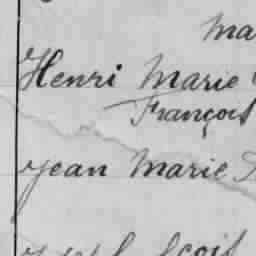 Ma
Henri Marie
François
Jean Marie